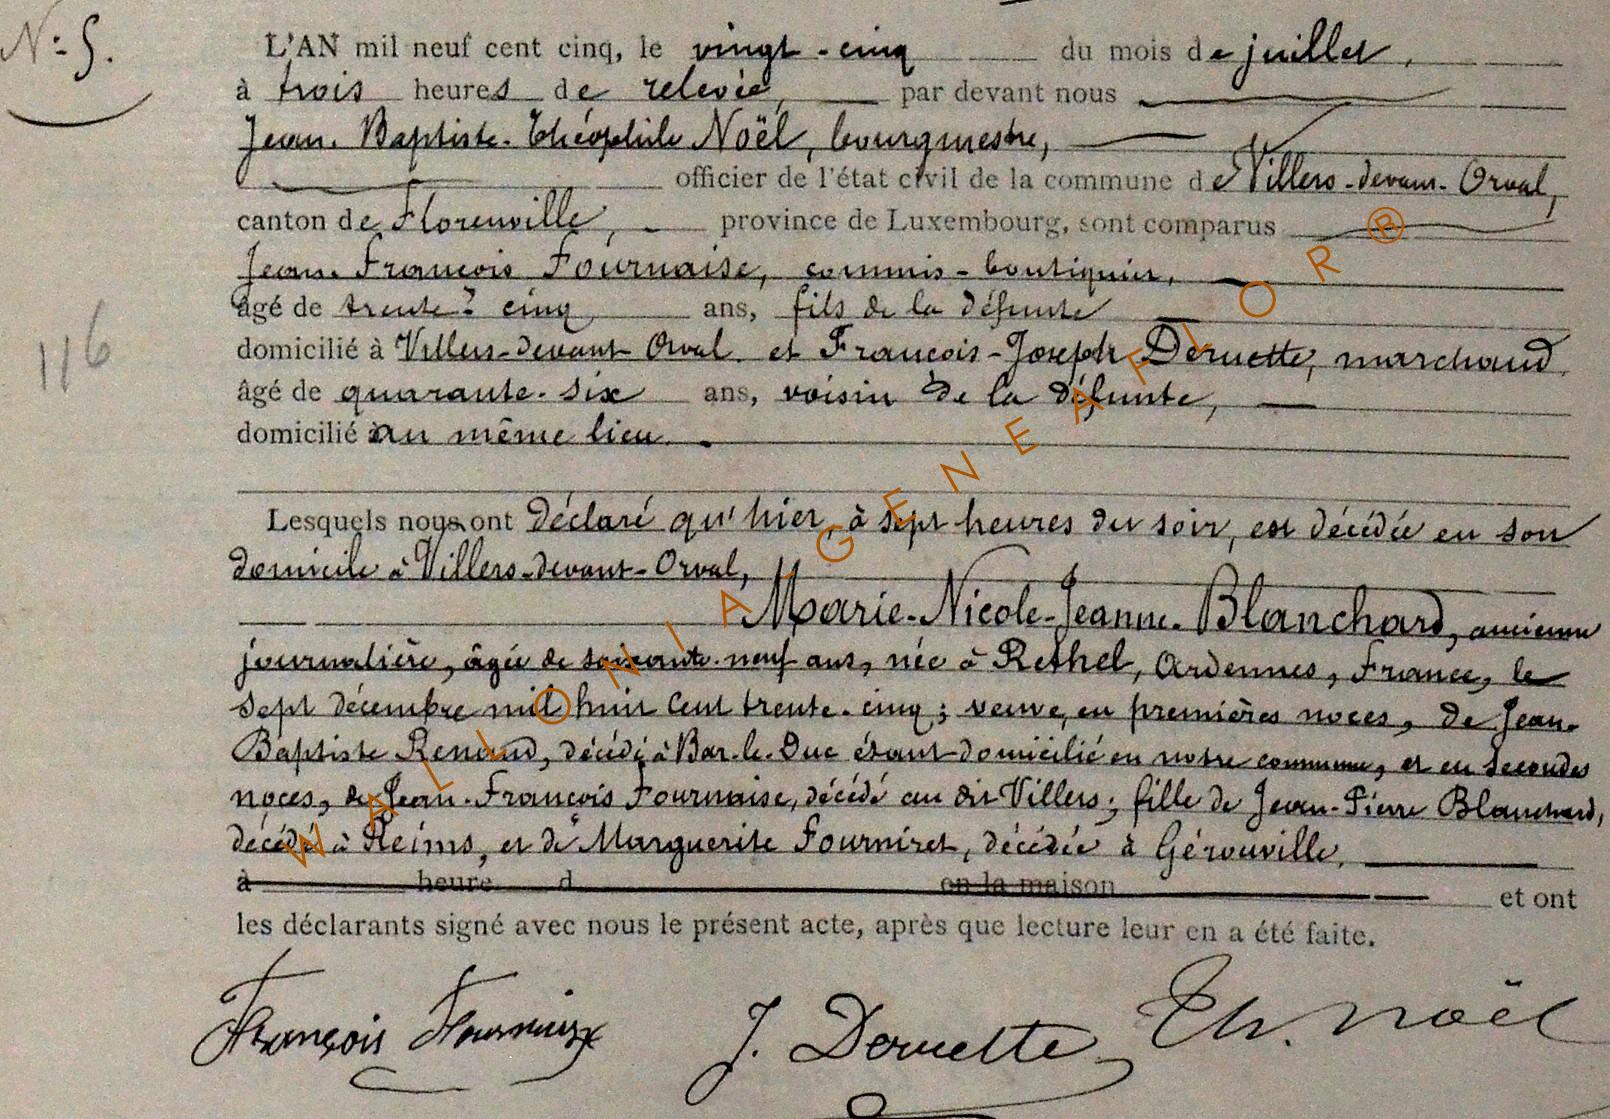 N° 5.
L'AN mil neuf cent cinq, le vingt-cinq du mois de juillet,
à trois heures de relevée, par devant nous
Jean-Baptiste-Théophile Noël, bourgmestre,
officier de l'état civil de la commune de Villers-devant-Orval,
canton de Florenville, province de Luxembourg, sont comparus
Jean-François Fournaise, commis-boutiquier,
âgé de trente-cinq ans, fils de la défunte
domicilié à Villers-devant-Orval et François-Joseph Deruette, marchand
âgé de quarante-six ans, voisin de la défunte,
domicilié au même lieu.
116
Lesquels nous ont déclaré qu'hier, à sept heures du soir, est décédée en son
domicile à Villers-devant-Orval,
Marie-Nicole-Jeanne Blanchard, ancienne
journalière, âgée de soixante-neuf ans, née à Rethel, Ardennes, France, le
sept décembre mil huit cent trente-cinq; veuve, en premières noces, de Jean-
Baptiste Renaud, décédé à Bar-le-Duc étant domicilié en notre commune, et en secondes
noces, de Jean-François Fournaise, décédé au dit Villers; fille de Jean-Pierre Blanchard,
décédé à Reims, et de Marguerite Fourniret, décédée à Gérouville,
à heure d en la maison et ont
les déclarants signé avec nous le présent acte, après que lecture leur en a été faite.
François J. Deruette Th. Noël
WALLONIA GENEAFLOR ®